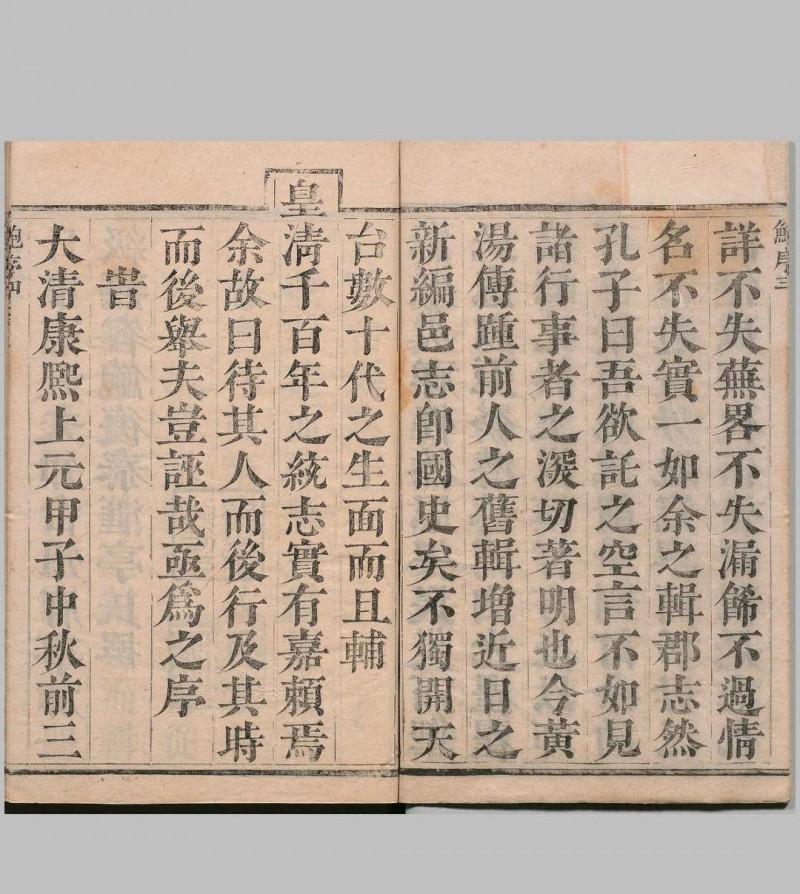 鮑序三
詳不失蕪畧不失漏餙不過情
名不失實一如余之輯郡志然
孔子曰吾欲託之空言不如見
諸行事者之深切著明也今黃
湯傳踵前人之舊輯增近日之
新編邑志卽國史矣不獨開天
台數十代之生面而且輔
皇淸千百年之統志實有嘉賴焉
余故曰待其人而後行及其時
而後舉夫豈誣哉亟爲之序
旹
大清康熙上元甲子中秋前三
鮑序四